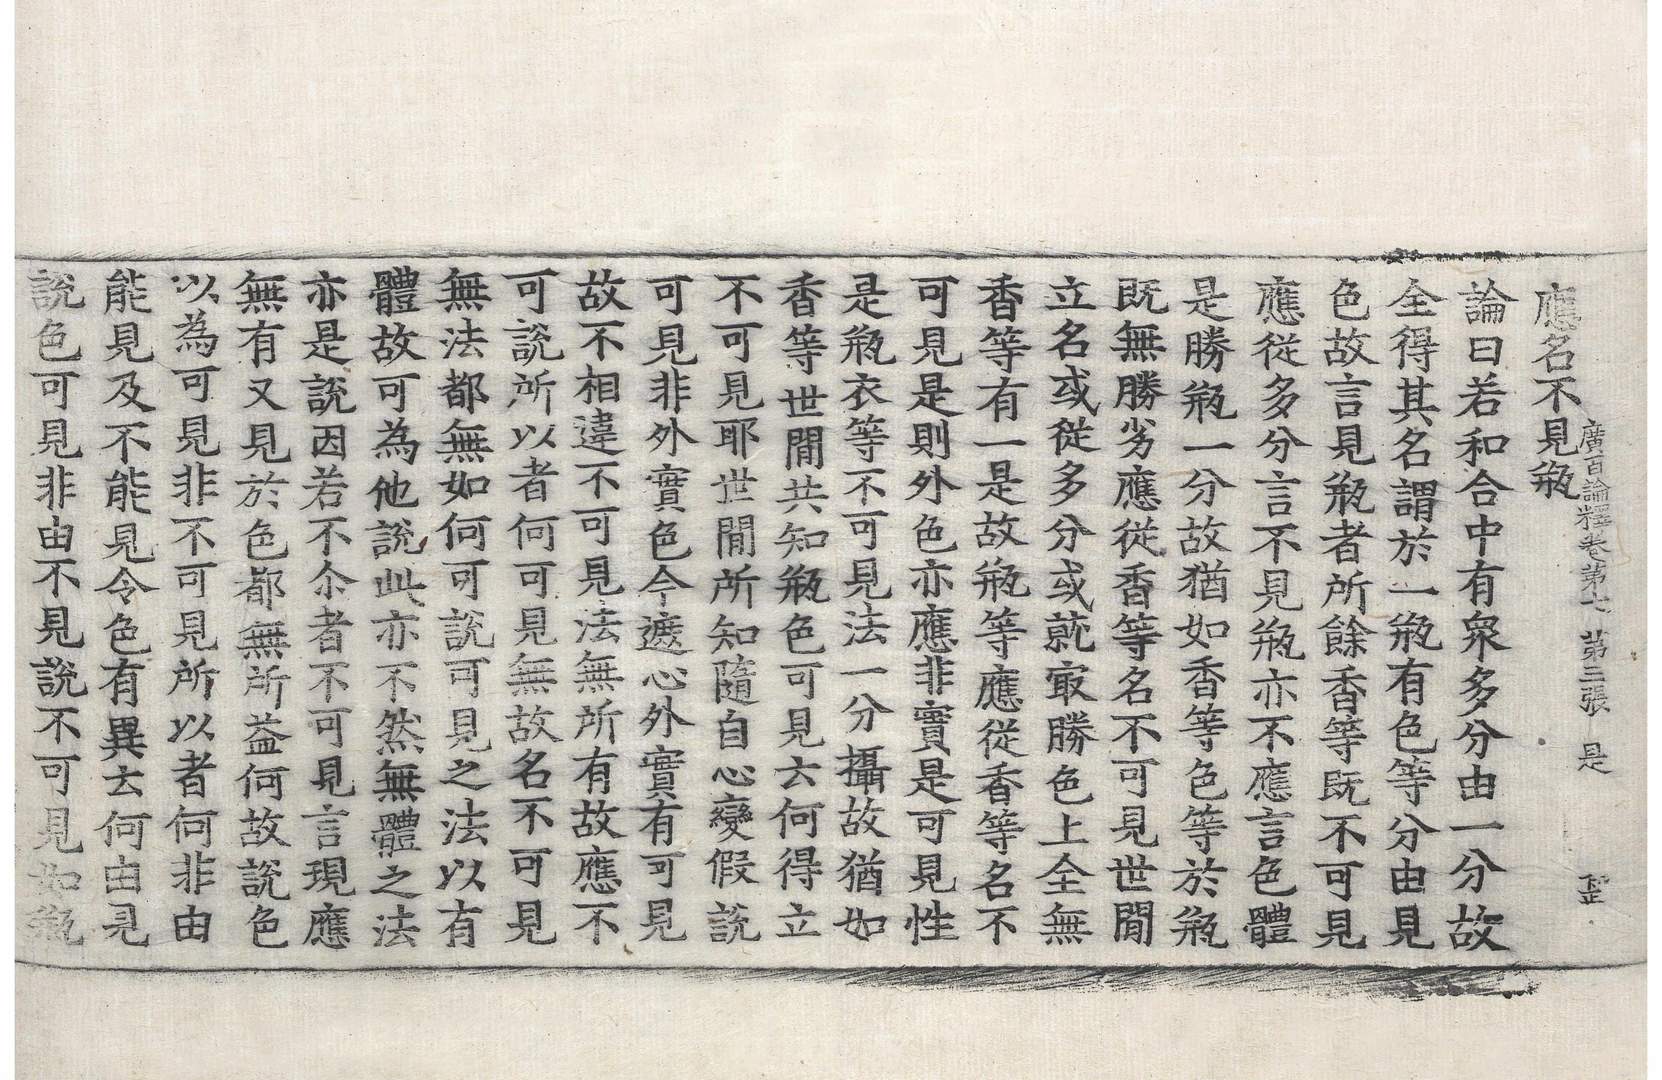 廣百論釋卷第七 第三張 是
應名不見瓶
論曰若和合中有衆多分由一分故
全得其名謂於一瓶有色等分由見
色故言見瓶者所餘香等既不可見
應從多分言不見瓶亦不應言色體
是勝瓶一分故猶如香等色等於瓶
既無勝劣應從香等名不可見世閒
立名或從多分或就㝡勝色上全無
香等有一是故瓶等應從香等名不
可見是則外色亦應非實是可見性
是瓶衣等不可見法一分攝故猶如
香等世閒共知瓶色可見云何得立
不可見耶世閒所知隨自心變假說
可見非外實色今遮心外實有可見
故不相違不可見法無所有故應不
可說所以者何可見無故名不可見
無法都無如何可說可見之法以有
體故可為他說此亦不然無體之法
亦是說因若不尒者不可見言現應
無有又見於色都無所益何故說色
以為可見非不可見所以者何非由
能見及不能見令色有異云何由見
說色可見非由不見說不可見如瓶